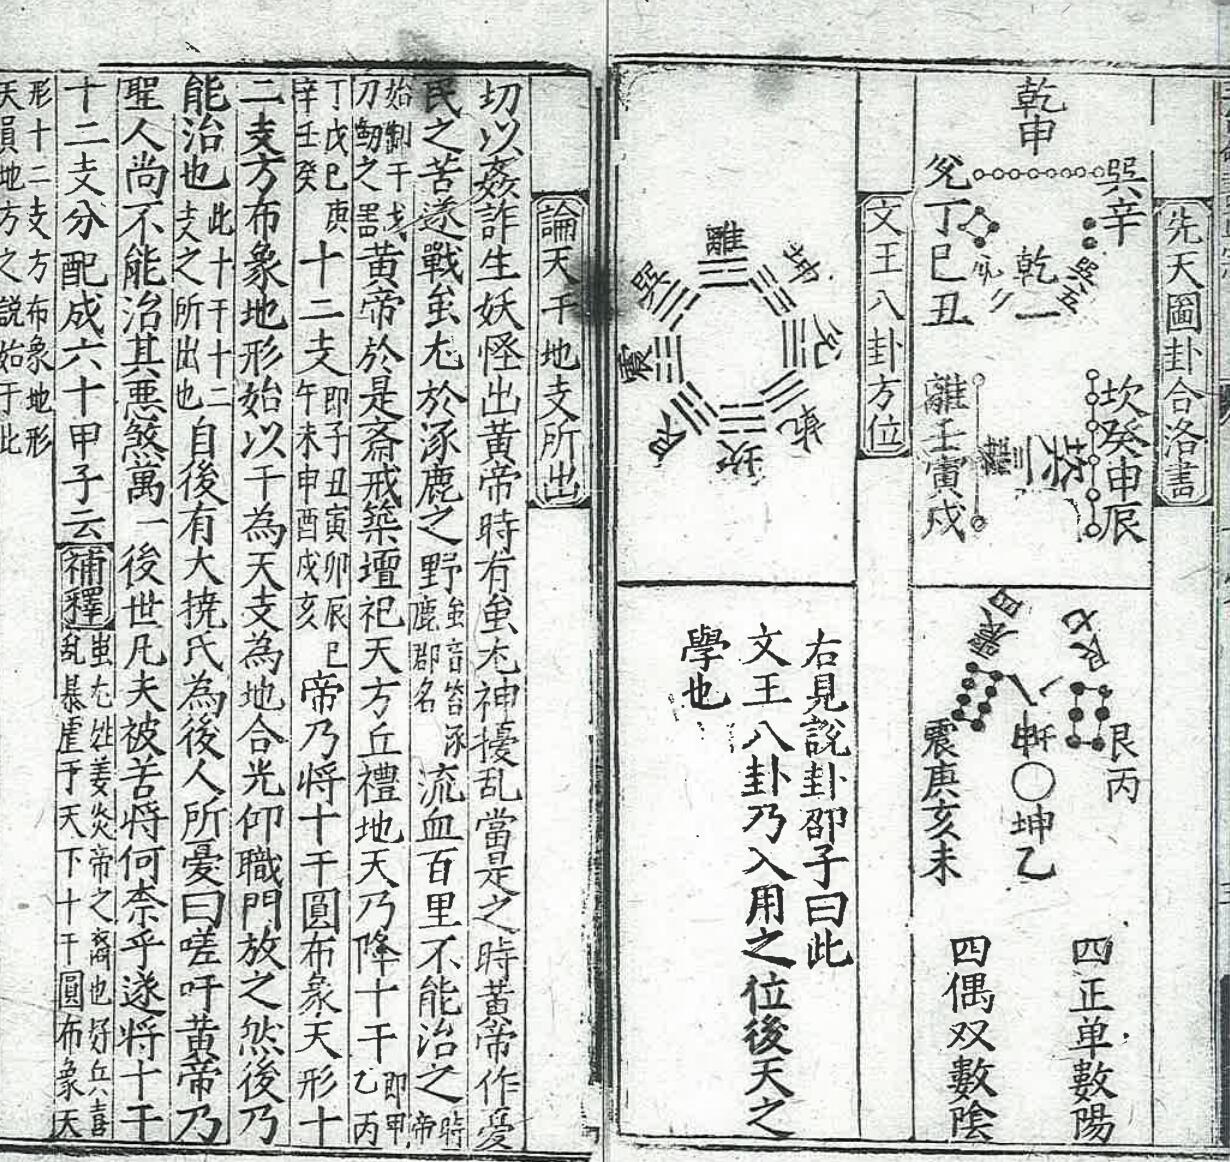 先天圖卦合洛書
乾甲
巽辛
兌丁巳丑
乾一
巽五
坎癸申辰
離壬寅戌
震四
艮七
坤八
艮丙
震庚亥未
坤乙
四正单數陽
四偶双數陰
文王八卦方位
離
坤
兌
乾
坎
艮
震
巽
右見說卦邵子曰此
文王八卦乃入用之位後天之
學也
論天干地支所出
切以姦詐生妖怪出黃帝時有蚩尤神擾乱當是之時黃帝作憂
民之苦遂戰蚩尤於涿鹿之野蚩音笞涿鹿郡名流血百里不能治之時帝
始制干戈刀劒之噐黃帝於是斎戒築壇祀天方丘禮地天乃降十干即甲乙丙
丁戊巳庚辛壬癸十二支即子丑寅卯辰巳午未申酉戌亥帝乃将十干圓布象天形十
二支方布象地形始以干為天支為地合光仰職門放之然後乃
能治也此十干十二支之所出也自後有大撓氏為後人所憂曰嗟吁黃帝乃
聖人尚不能治其悪煞萬一後世凡夫被苦将何柰乎遂将十干
十二支分配成六十甲子云補釋蚩尤姓姜炎帝之裔也好兵喜乱暴虐于天下十干圓布象天
形十二支方布象地形天員地方之説始于此